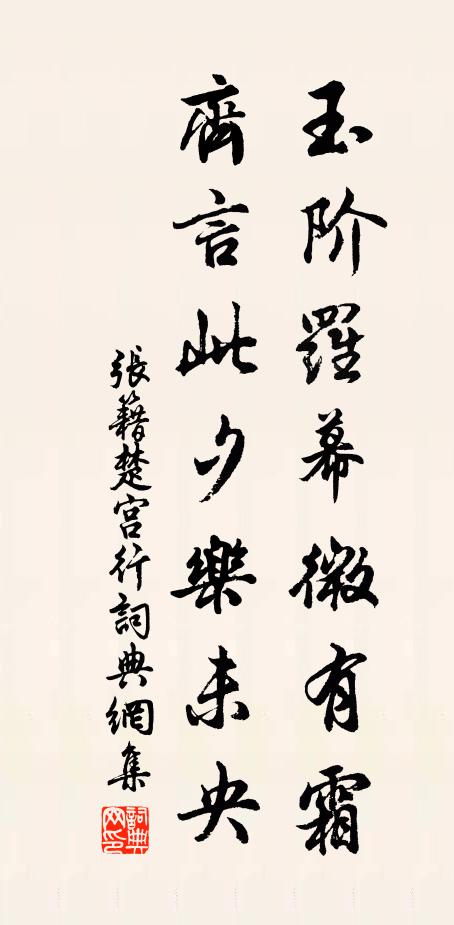 玉阶羅幕微有霜
齊言此夕樂未央
張籍楚宮行詞典網集
詞典网印